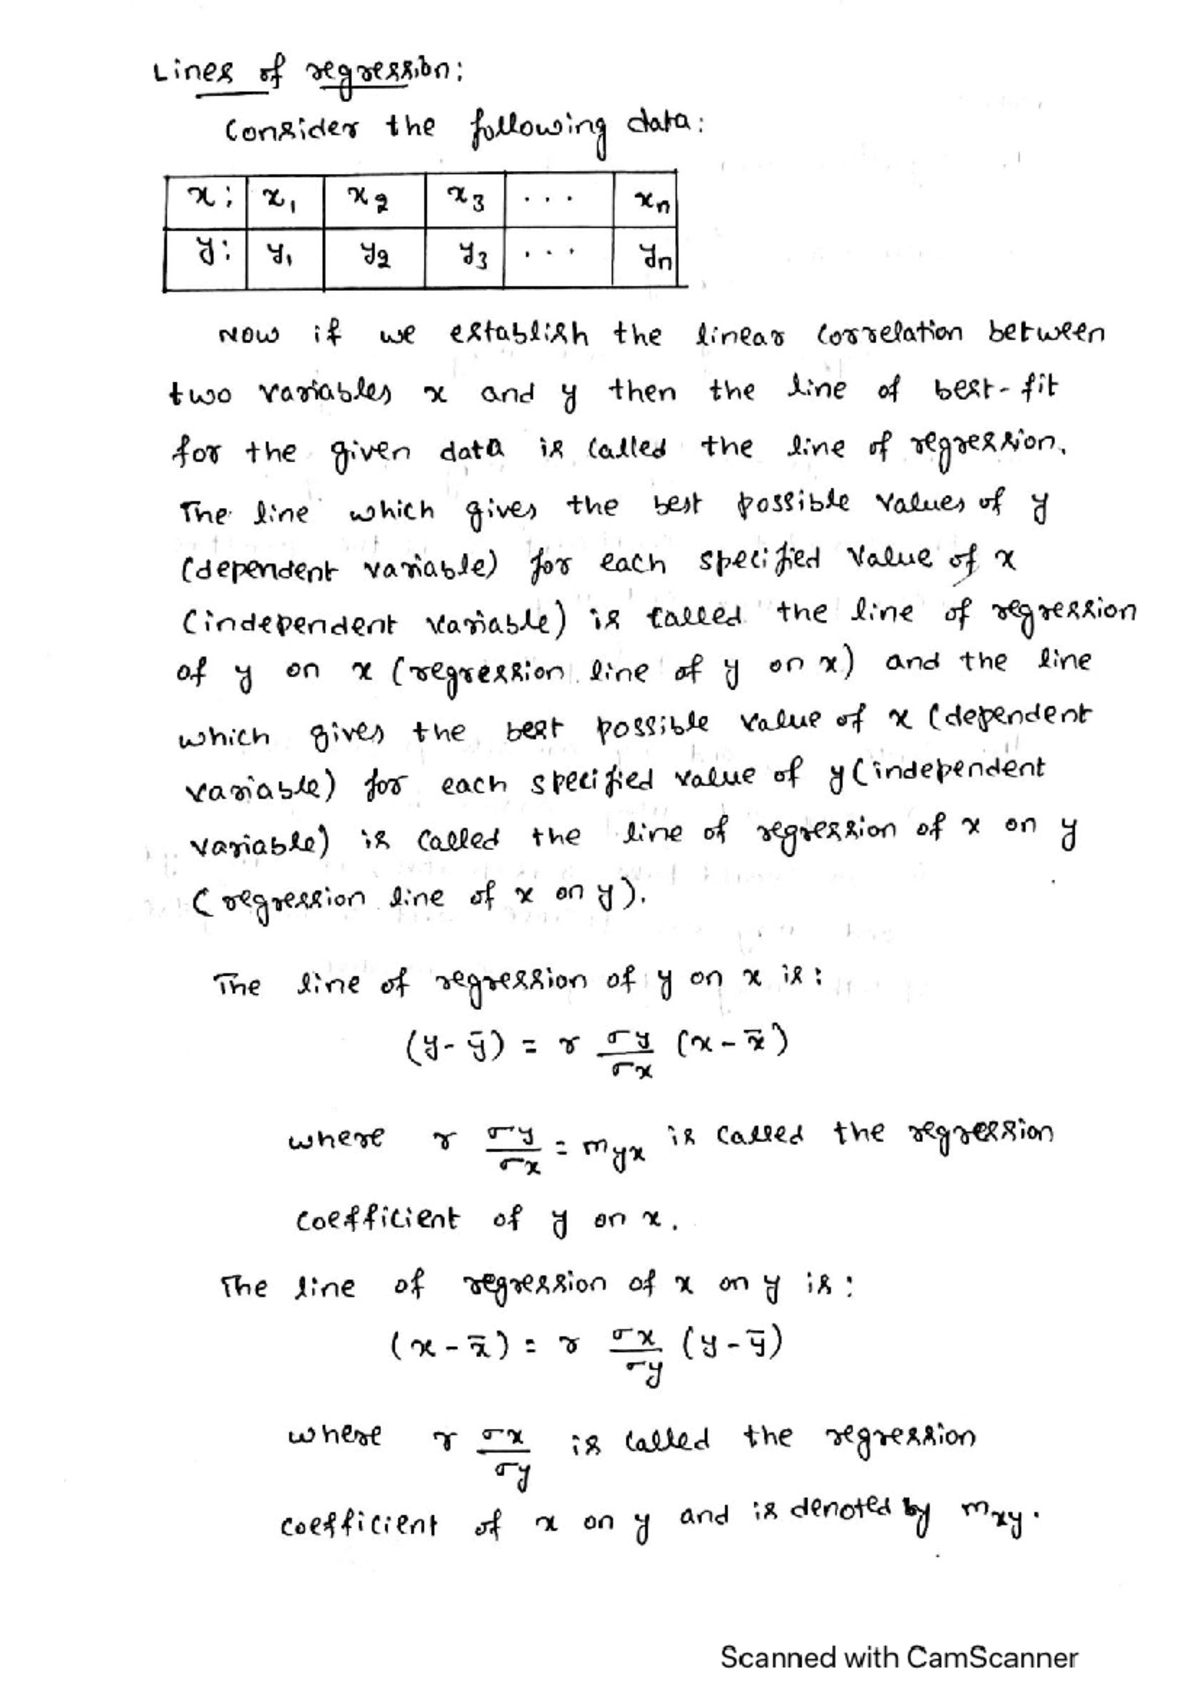 Lines of regression:
Consider the following data:
x: x₁ x₂ x₃ ... xₙ
y: y₁ y₂ y₃ ... yₙ
Now if we establish the linear correlation between
two variables x and y then the line of best-fit
for the given data is called the line of regression.
The line which gives the best possible values of y
(dependent variable) for each specified value of x
(independent variable) is called the line of regression
of y on x (regression line of y on x) and the line
which gives the best possible value of x (dependent
variable) for each specified value of y (independent
variable) is called the line of regression of x on y
(regression line of x on y).
The line of regression of y on x is:
(y - ȳ) = r σy/σx (x - x̄)
where r σy/σx = myx is called the regression
coefficient of y on x.
The line of regression of x on y is:
(x - x̄) = r σx/σy (y - ȳ)
where r σx/σy is called the regression
coefficient of x on y and is denoted by mxy.
Scanned with CamScanner